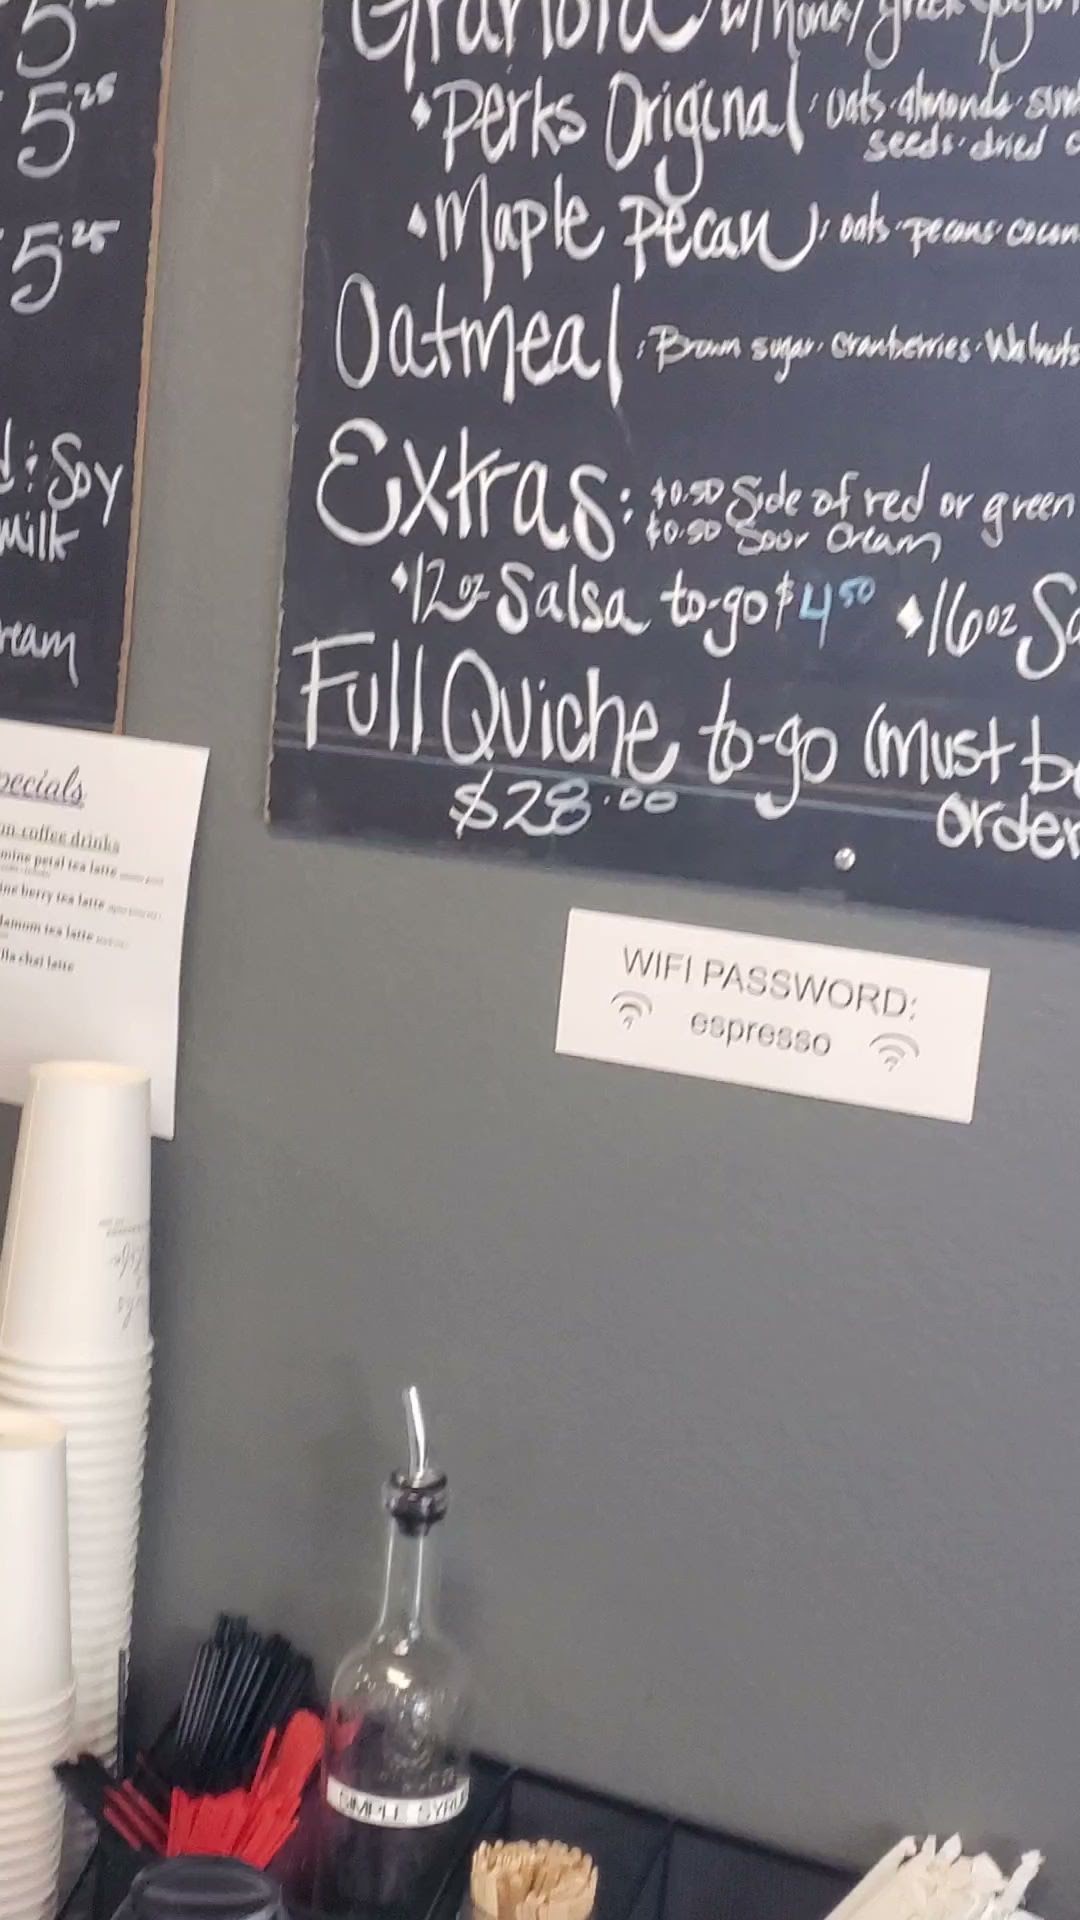 5
5.25
5.25
d: Soy
milk
ream
Granola w/ honey greek yogur
Perks Original: oats·almonds·sun
seeds·dried c
Maple Pecan: oats·pecans·cocon
Oatmeal: Brown sugar·Cranberries·Walnuts
Extras: $0.50 Side of red or green
$0.50 Sour Cream
12oz Salsa to-go $4.50 16oz Sa
Full Quiche to-go (Must be
$28.00 order
pecials
on coffee drinks
mine petal tea latte
ine berry tea latte
damom tea latte
lla chai latte
WIFI PASSWORD:
espresso
SIMPLE SYRU